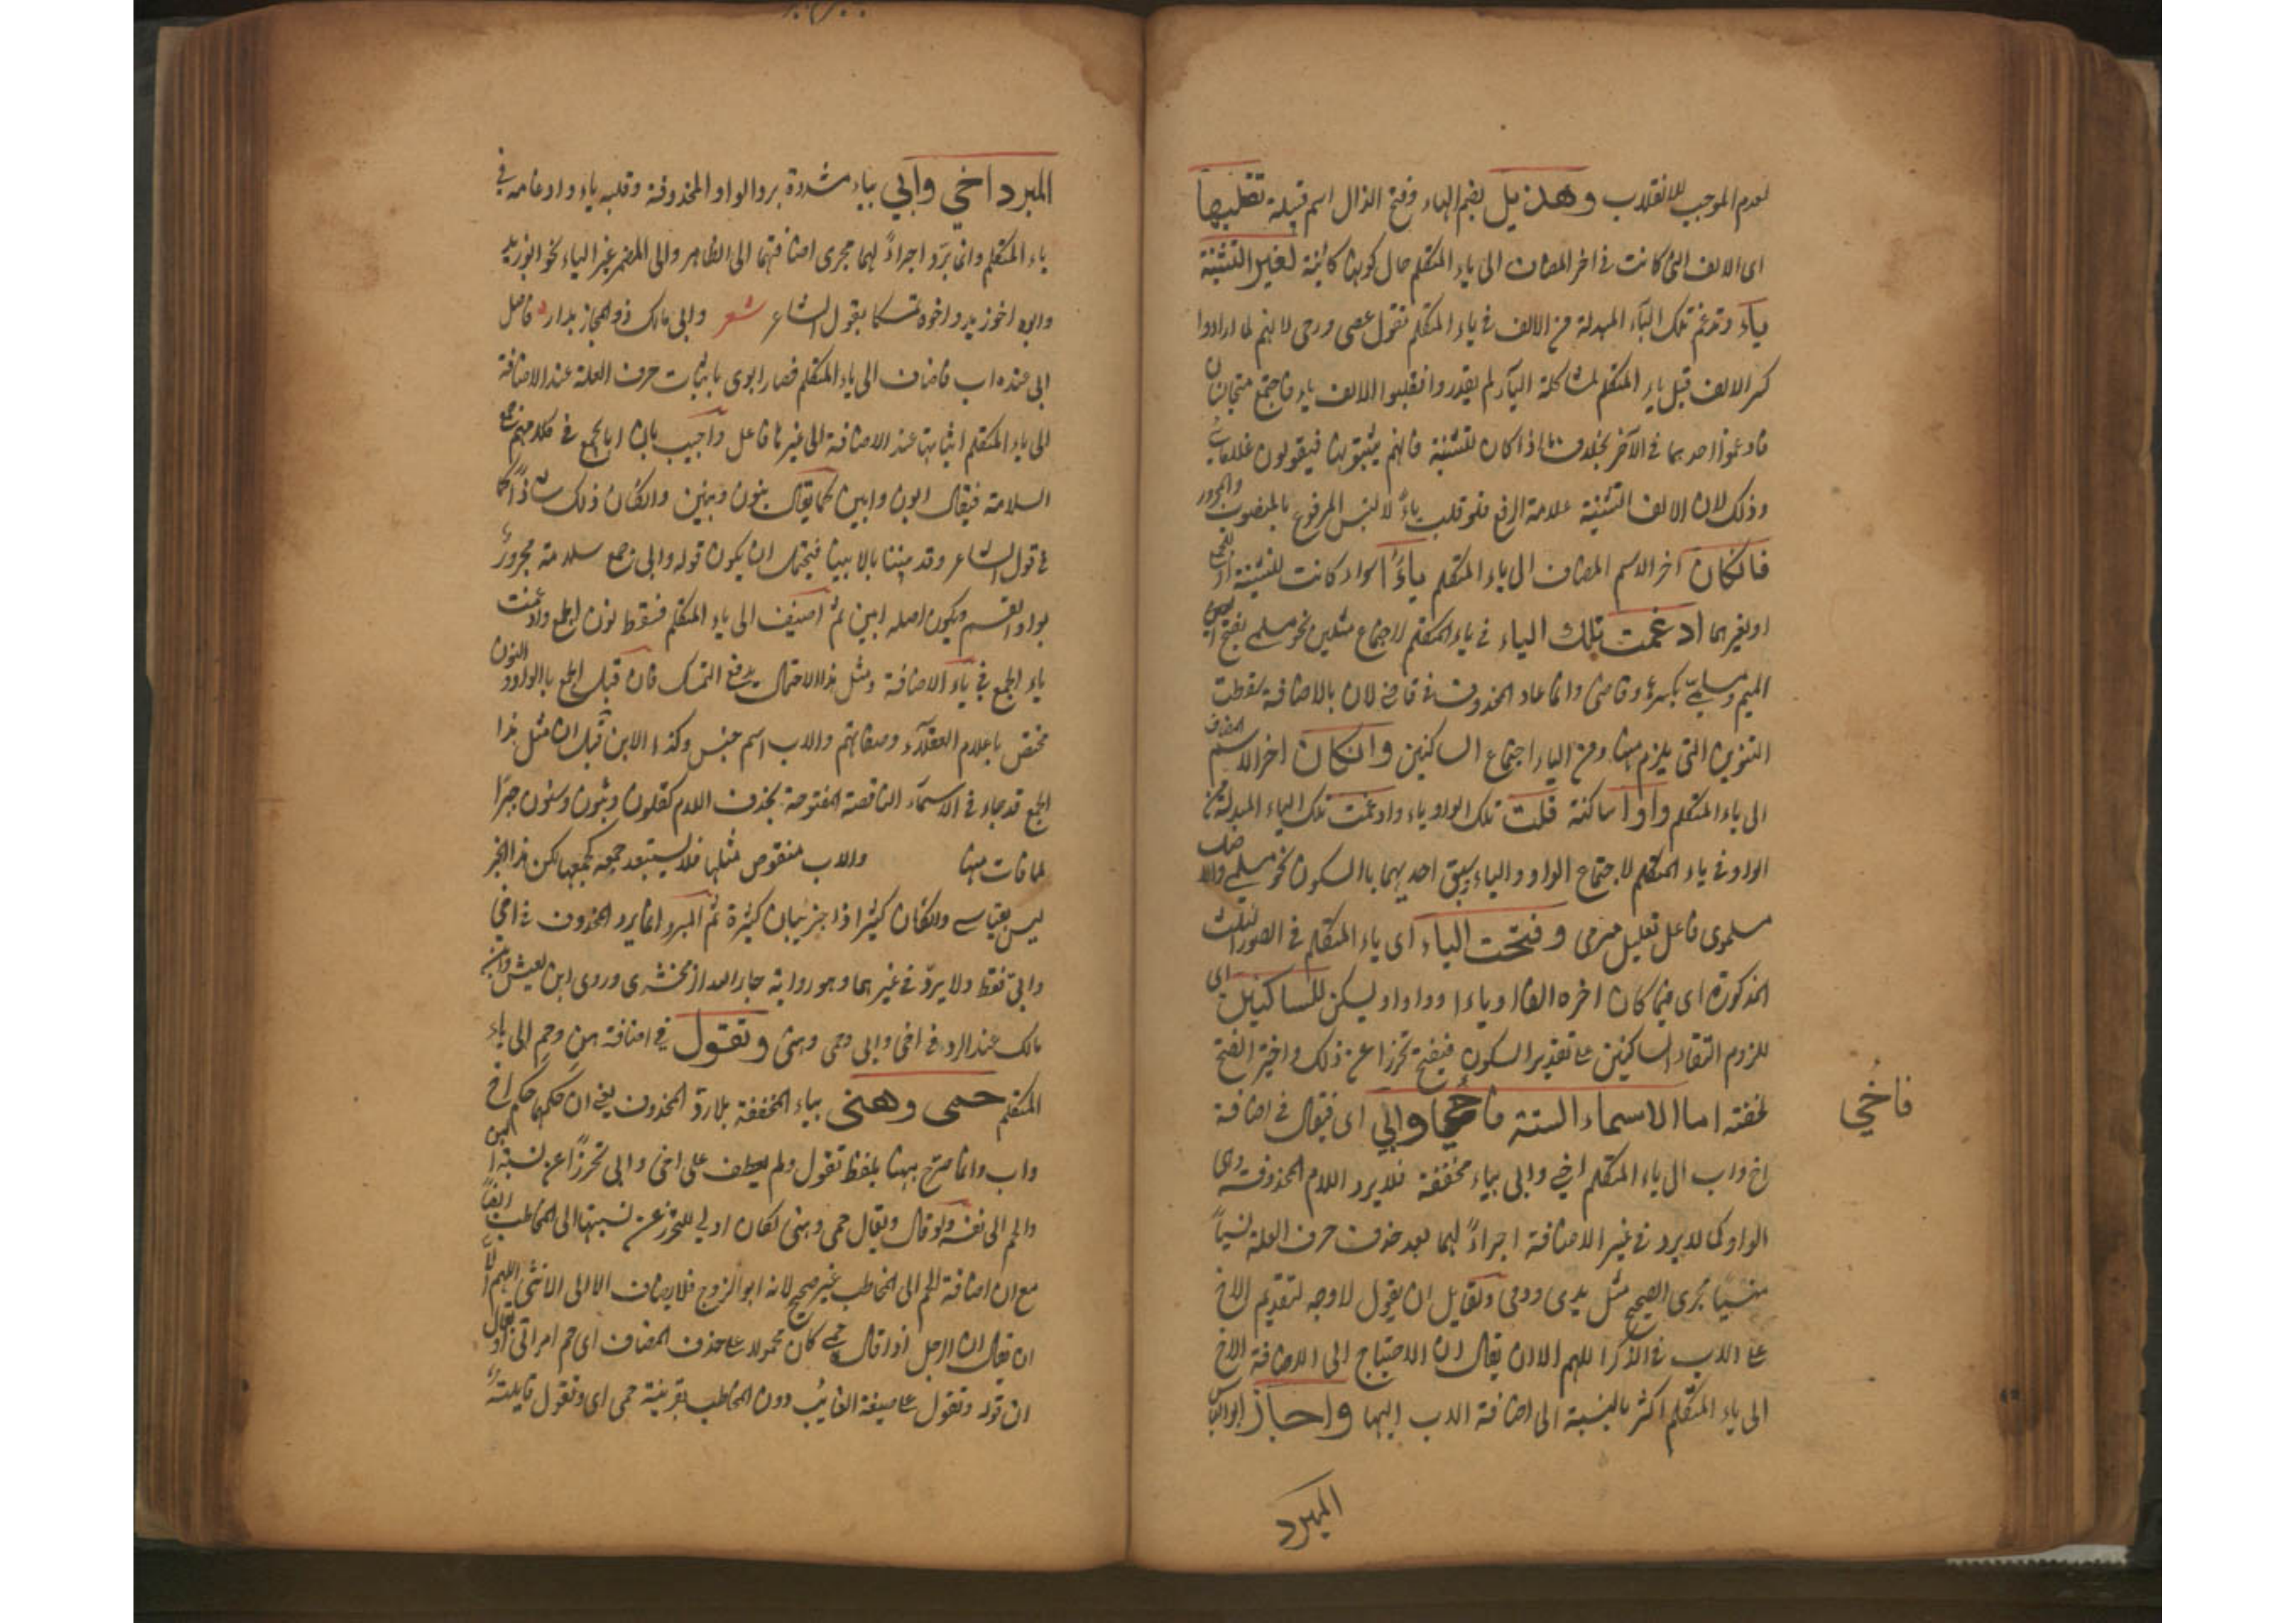 لعدم الموجب للانقلاب وهذيل بضم الهاء وفتح الذال اسم قبيلة تقلبها
اى الالف التى كانت فى اخر المضاف الى ياء المتكلم حال كونها كائنة لغير التثنية
ياء وتدغم تلك الياء المبدلة من الالف فى ياء المتكلم تقول عصى ورحى لانهم لما ارادوا
كسر الالف قبل ياء المتكلم لمشاكلة الياء لم يقدروا فقلبوا الالف ياء فاجتمع متجانسان
فادغموا احدهما فى الآخر بخلاف ما اذا كان للتثنية فانهم يثبتونها فيقولون غلاماى
وذلك لان الالف التثنية علامة الرفع فلو قلبت ياء لالتبس المرفوع بالمنصوب والمجرور
فانكان آخر الاسم المضاف الى ياء المتكلم ياء سواء كانت للتثنية او للجمع
او لغيرهما ادغمت تلك الياء فى ياء المتكلم لاجتماع مثلين نحو مسلمى بفتح
الميم ومسلمى بكسره وقاضى وانما عاد المحذوف فى قاضى لان بالاضافة سقطت
التنوين التى يلزم منها ومن الياء اجتماع الساكنين وانكان اخر الاسم المضاف
الى ياء المتكلم واوا ساكنة قلبت تلك الواو ياء وادغمت تلك الياء المبدلة من
الواو فى ياء المتكلم لاجتماع الواو والياء وسبق احديهما بالسكون نحو مسلمى والاصل
مسلموى فاعل تعليل مرمى وفتحت الياء اى ياء المتكلم فى الصور الثلث
المذكورة اى فيما كان اخره الفا او ياء او واوا ولم يسكن للساكنين اى
للزوم التقاء الساكنين على تقدير السكون فيفتح تحرزا عن ذلك واختير الفتح
لخفته اما الاسماء الستة فاخى وابي اى فيقال فى اضافة
فاخي
اخ واب الى ياء المتكلم اخى وابى بياء مخففة فلا يرد اللام المحذوفة وهى
الواو كما لا يرد فى غير الاضافة اجراء لهما بعد حذف حرف العلة نسيا
منسيا مجرى الصحيح مثل يدى ودمى ولقايل ان يقول لا وجه لتقديم الاخ
على الاب فى الذكر اللهم الا ان يقال ان الاحتياج الى الاضافة الاخ
الى ياء المتكلم اكثر بالنسبة الى اضافة الاب اليها واجاز ابو العباس
المبرد
المبرد اخي وابي بياء مشددة برد الواو المحذوفة وقلبه ياء وادغامه فى
ياء المتكلم وانما يرد اجراء لهما مجرى اضافتهما الى الظاهر والى المضمر غير الياء نحو ابو زيد
وابوه اخو زيد واخوه تمسكا بقول الشاعر شعر وابى مالك ذو المجاز بدار فاصل
ابى عنده اب فاضاف الى ياء المتكلم فصار ابوى باثبات حرف العلة عند الاضافة
الى ياء المتكلم اثباتها عند الاضافة الى غيرها فاعل واجيب بان ابا يجمع فى كلامهم جمع
السلامة فيقال ابون وابين كما يقال بنون وبنين وانكان ذلك شاذا كما
فى قول الشاعر وقد فيننا بالابينا فيحتمل ان يكون قوله وابى جمع سلامة مجرور
بواو القسم ويكون اصله ابين ثم اضيف الى ياء المتكلم فسقط نون الجمع وادغمت
ياء الجمع فى ياء الاضافة ومثل هذا الاحتمال يدفع التمسك فان قيل الجمع بالواو والنون
مختص باعلام العقلاء وصفاتهم والاب اسم جنس وكذا الابن قيل ان مثل هذا
الجمع قد جاء فى الاسماء الناقصة المفتوحة بحذف اللام كقلون وثبون وسنون جبرا
لما فات منها والاب منقوص مثلها فلا يستبعد جمعه كجمعها لكن هذا الجبر
ليس بقياسى وانكان كثيرا ثم المبرد انما يرد المحذوف فى اخى
وابى فقط ولا يرد فى غيرهما وهو رواية جار الله الزمخشرى وروى ابن يعيش وابن
مالك عند الرد فى اخى وابى وحمى وهنى وتقول فى اضافة هن وحم الى ياء
المتكلم حمى وهنى بياء المخففة بلا رد المحذوف يعنى ان حكمهما حكم اخ
واب وانما صرح بهنا بلفظ تقول ولم يعطف على اخى وابى تحرزا عن نسبة الهن
والحم الى نفسه ولو قال ويقال حمى وهنى لكان اولى للتحرز عن نسبتها الى المخاطب ايضا
مع ان اضافة الحم الى المخاطب غير صحيح لانه ابو الزوج فلا يضاف الا الى الانثى اللهم الا
ان يقال ان الرجل اذا قال حمى كان محمولا على حذف المضاف اى حم امراتى او يقال
ان قوله وتقول على صيغة الغائب دون المخاطب بقرينة حمى اى وتقول قايلته